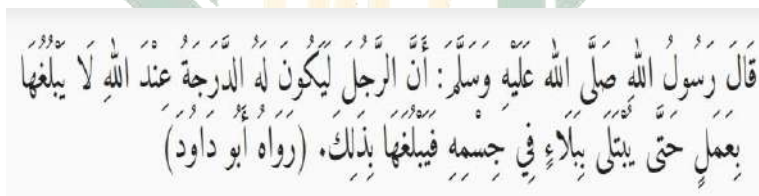 قَالَ رَسُولُ اللهِ صَلَّى الله عَلَيْهِ وَسَلَّمَ: أَنَّ الرَّجُلَ لَيَكُونَ لَهُ الدَّرَجَةُ عِنْدَ اللهِ لَا يَبْلُغُهَا
بِعَمَلٍ حَتَّى يُبْتَلَى بِبَلَاءٍ فِي جِسْمِهِ فَيَبْلُغُهَا بِذَلِكَ. (رَوَاهُ أَبُو دَاوُدَ)